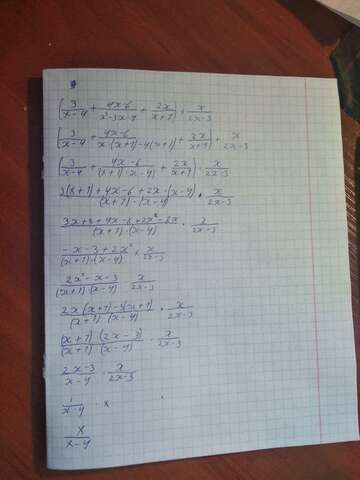 (3/(x-4) + (4x-6)/(x²-3x-4) + 2x/(x+1)) · x/(2x-3)
(3/(x-4) + (4x-6)/(x·(x+1)-4(x+1)) + 2x/(x+1)) · x/(2x-3)
(3/(x-4) + (4x-6)/((x+1)·(x-4)) + 2x/(x+1)) · x/(2x-3)
(3(x+1)+4x-6+2x·(x-4))/((x+1)·(x-4)) · x/(2x-3)
(3x+3+4x-6+2x²-8x)/((x+1)·(x-4)) · x/(2x-3)
(-x-3+2x²)/((x+1)·(x-4)) · x/(2x-3)
(2x²-x-3)/((x+1)·(x-4)) · x/(2x-3)
(2x(x+1)-3(x+1))/((x+1)·(x-4)) · x/(2x-3)
((x+1)·(2x-3))/((x+1)·(x-4)) · x/(2x-3)
(2x-3)/(x-4) · x/(2x-3)
1/(x-4) · x
x/(x-4)